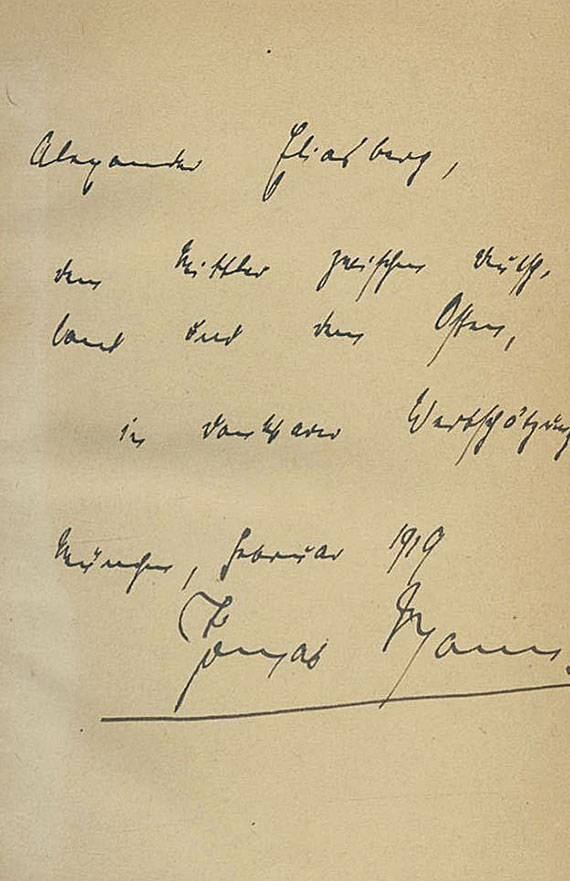 Alexander Eliasberg,
dem Mittler zwischen Deutsch-
land und dem Osten,
in dankbarer Wertschätzung
München, Februar 1919
Thomas Mann.